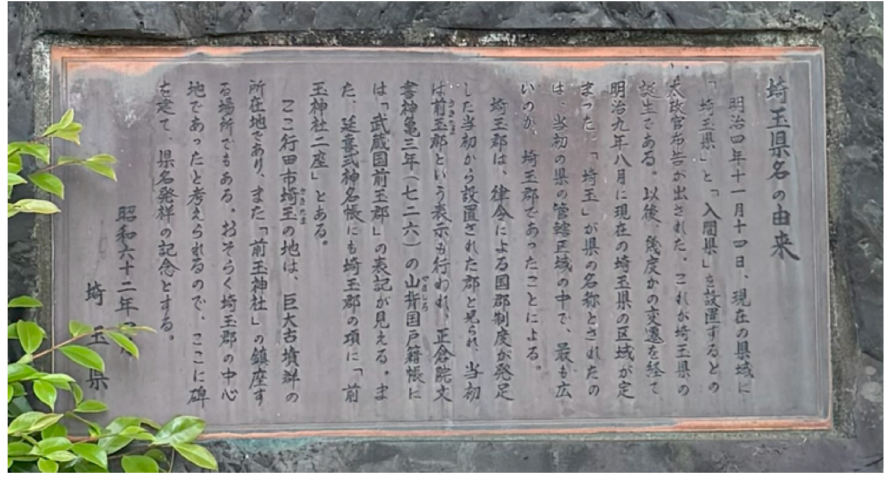 埼玉県名の由来
明治四年十一月十四日、現在の県域に
「埼玉県」と「入間県」を設置するとの
太政官布告が出された。これが埼玉県の
誕生である。以後、幾度かの変遷を経て
明治九年八月に現在の埼玉県の区域が定
まった。「埼玉」が県の名称とされたの
は、当初の県の管轄区域の中で、最も広
いのが、埼玉郡であったことによる。
埼玉郡は、律令による国郡制度が発足
した当初から設置された郡と見られ、当初
は前玉郡という表示も行われ、正倉院文
書神亀三年（七二六）の山背国戸籍帳に
は「武蔵国前玉郡」の表記が見える。ま
た、延喜式神名帳にも埼玉郡の項に「前
玉神社二座」とある。
ここ行田市埼玉の地は、巨大古墳群の
所在地であり、また「前玉神社」の鎮座す
る場所でもある。おそらく埼玉郡の中心
地であったと考えられるので、ここに碑
を建て、県名発祥の記念とする。
昭和六十二年
埼玉県